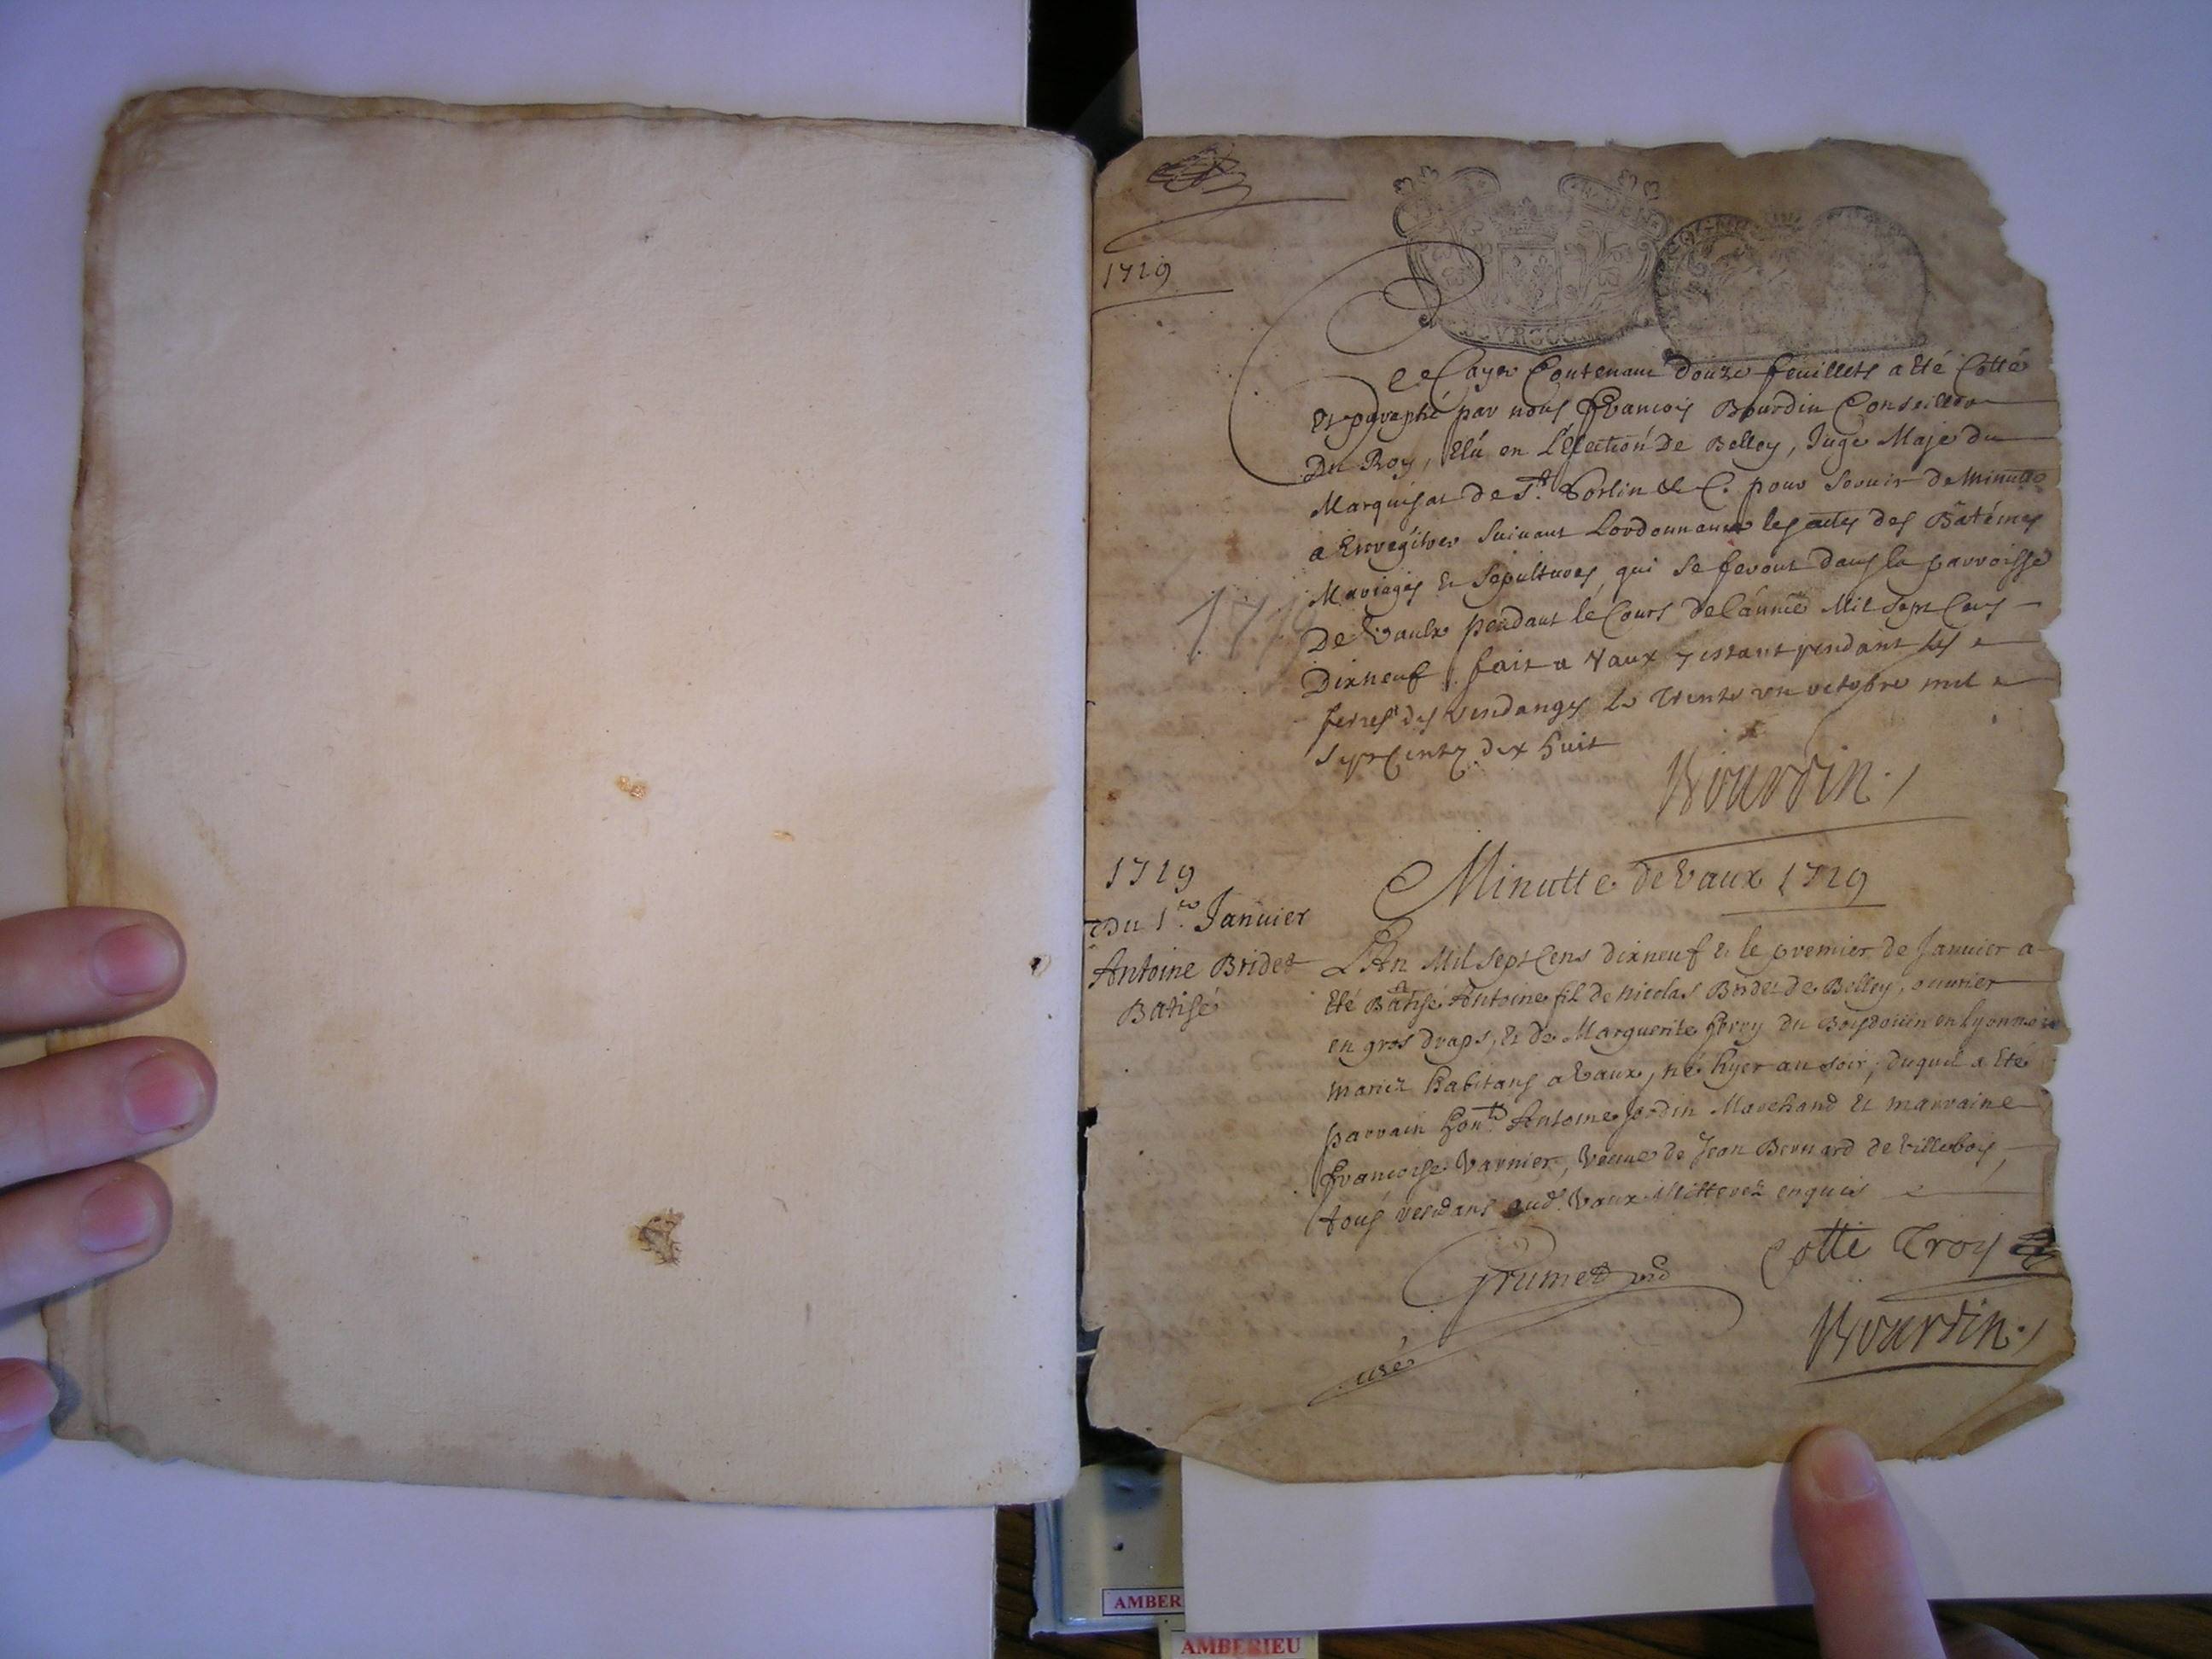 1719
BOVRGOG
Ce Cayer Contenant Douze feuillets a Eté Cotté
Et paraphé par nous François Bourdin Conseiller
Du Roy, Elû en L'Election De Belley, Juge Maje du
Marquisat de St. Sorlin &c. pour Servir de Minutte
a Enregitrer Suivant Lordonnance les actes des Batémes
Mariages Et Sepultures, qui Se feront dans la parroisse
De Vaulx pendant le Cours de l'année Mil Sept Cens
1719
Dixneuf. fait a Vaux y estant pendant les
feries des vendanges le Trente un octobre mil
Sept Cents dix huit
Bourdin
1719
Minutte de Vaux 1719
Du 1er. Januier
Antoine Bridet
Batisé
L'An Mil Sept Cens dixneuf & le premier de Januier a
Eté Batisé Antoine fil de Nicolas Bridet de Belley, ouurier
en gros draps, & de Marguerite ferry du Boisdoüin en Lyonnois
mariez habitans a Vaux, né hyer au soir, duquel a Eté
parrain hon. Antoine Jordin Marchand Et marraine
Francoise Varnier, Veuue de Jean Bernard de Villebois,
tous residans aud. Vaux illitterez enquis
Cotte Troy
Grumet
Bourdin
curé
AMBER
AMBERIEU